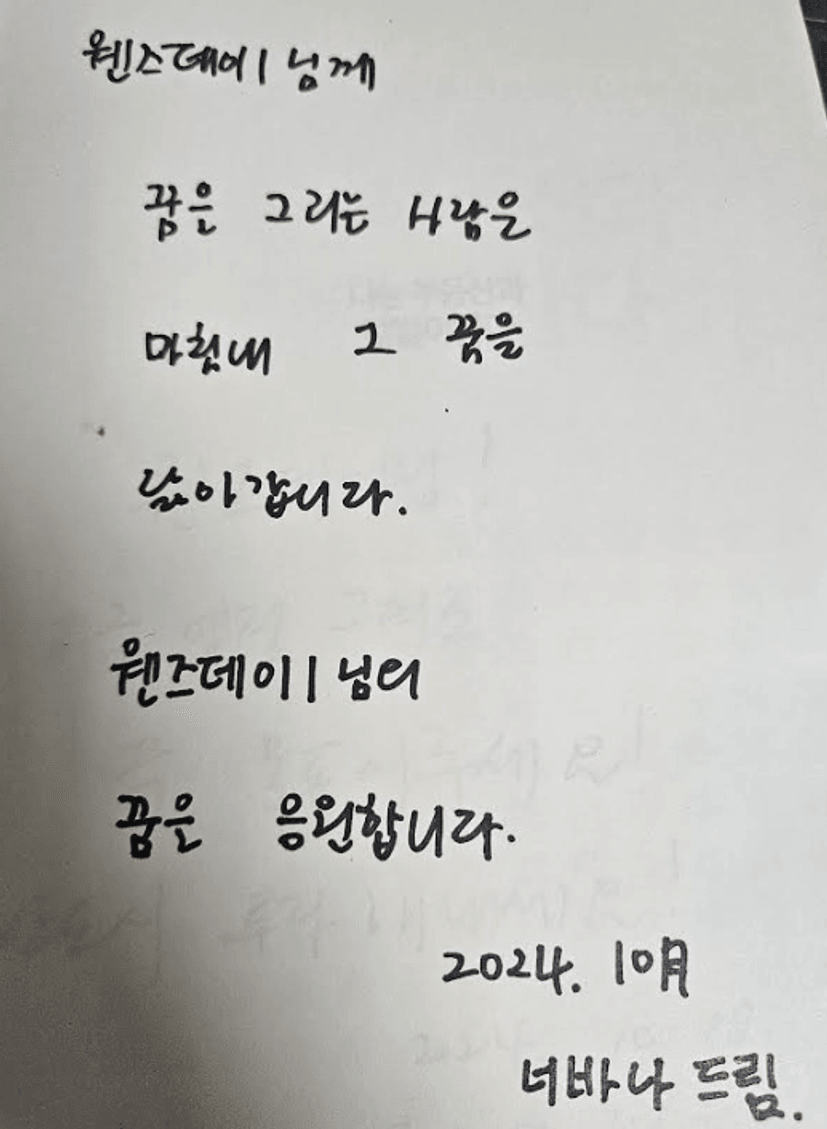 웬스데이 님께
꿈은 그리는 사람은
마침내 그 꿈을
닮아갑니다.
웬즈데이 님의
꿈은 응원합니다.
2024. 10월
너바나 드림.